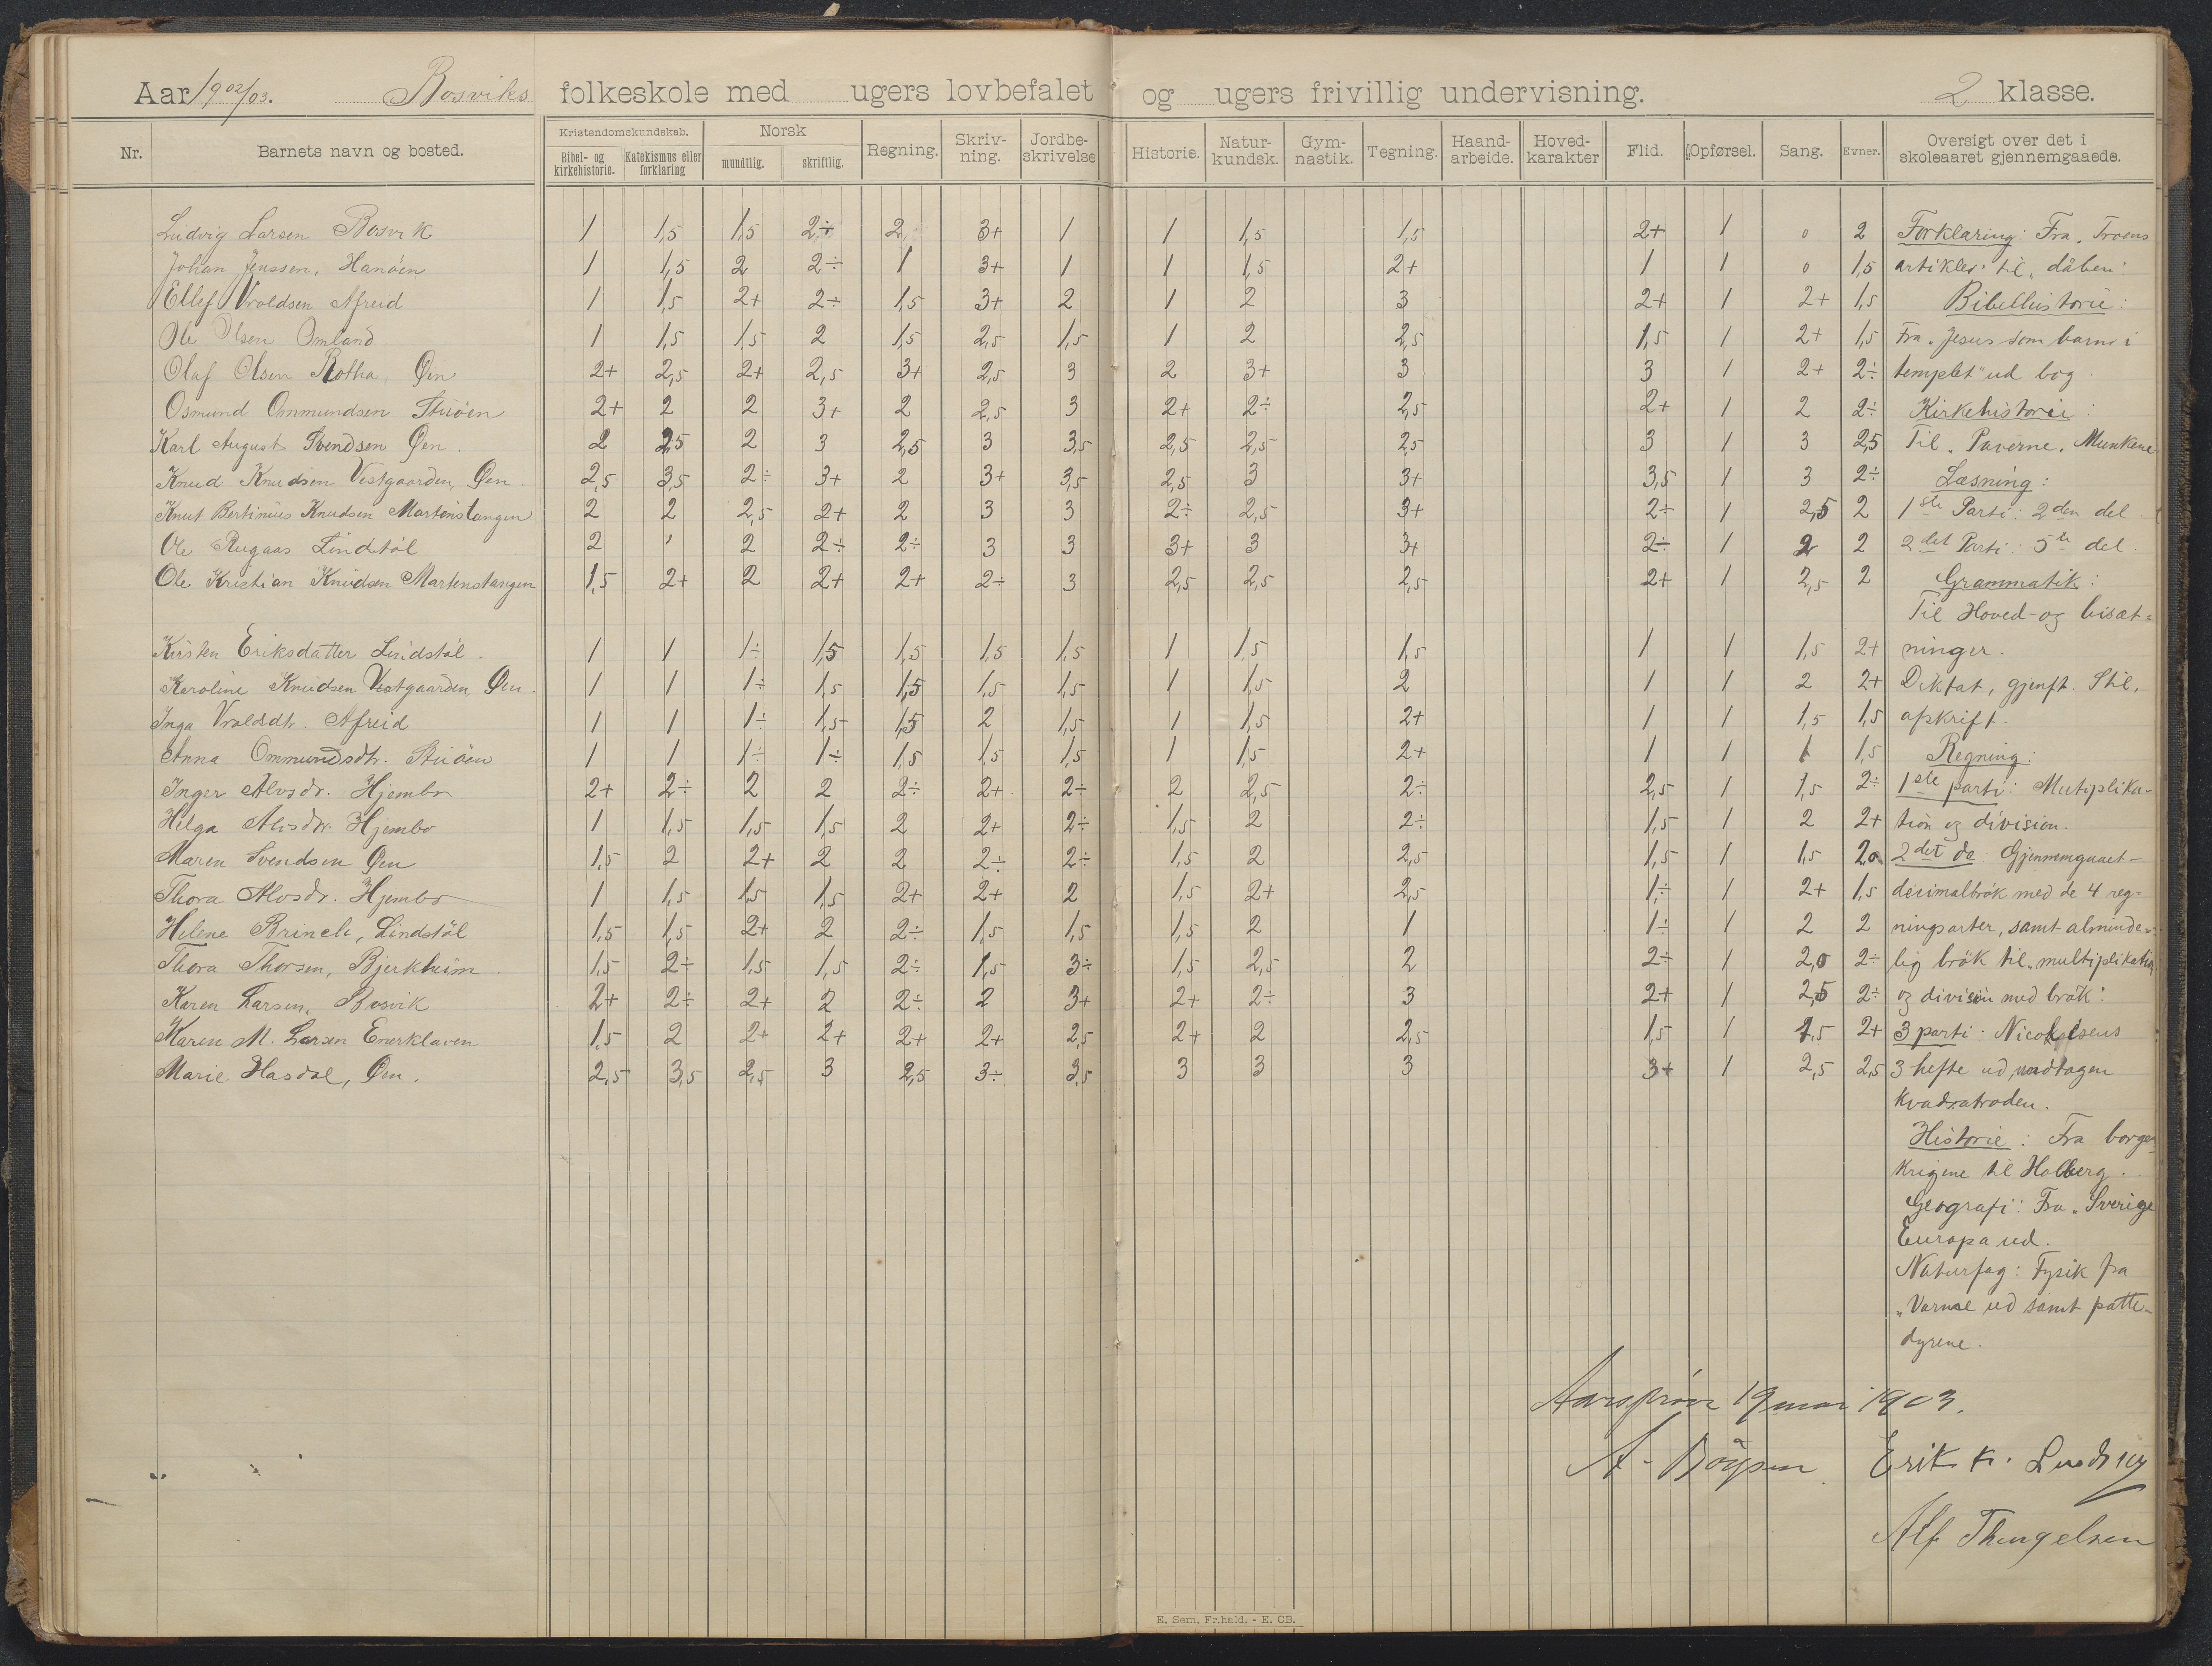 Aar 1902/03. Bosviks folkeskole med ugers lovbefalet og ugers frivillig undervisning. 2 klasse.
Nr. Barnets navn og bosted. Kristendomskundskab. Bibel- og kirkehistorie. Katekismus eller forklaring Norsk mundtlig. skriftlig. Regning. Skriv-ning. Jordbe-skrivelse Historie. Natur-kundsk. Gym-nastik. Tegning. Haand-arbeide. Hoved-karakter Flid. Opførsel. Sang. Evner. Oversigt over det i skoleaaret gjennemgaaede.
Ludvig Larsen Bosvik 1 1,5 1,5 2÷ 2 3+ 1 1 1,5 1,5 2+ 1 0 2 Forklaring: Fra "Troens
Johan Jenssen, Hanöen 1 1,5 2 2÷ 1 3+ 1 1 1,5 2+ 1 1 0 1,5 artikler" til "dåben"
Ellef Vroldsen Afreid 1 1,5 2+ 2÷ 1,5 3+ 2 1 2 3 2+ 1 2+ 1,5 Bibelhistorie:
Ole Olsen Omland 1 1,5 1,5 2 1,5 2,5 1,5 1 2 2,5 1,5 1 2+ 1,5 Fra "Jesus som barn i
Olaf Olsen Øen 2+ 2,5 2+ 2,5 3+ 2,5 3 2 3+ 3 3 1 2+ 2÷ templet" ud bog.
Osmund Ommundsen Stuöen 2+ 2 2 3+ 2 2,5 3 2+ 2÷ 2,5 2+ 1 2 2÷ Kirkehistorie:
Karl August Svendsen Øen. 2 2,5 2 3 2,5 3 3,5 2,5 2,5 2,5 3 1 3 2,5 Til "Paverne, Munkene
Knud Knudsen Vestgaarden, Øen. 2,5 3,5 2÷ 3+ 2 3+ 3,5 2,5 3 3+ 3,5 1 3 2÷ Læsning:
Knut Bertinius Knudsen Martenstangen 2 2 2,5 2+ 2 3 3 2÷ 2,5 3+ 2÷ 1 2,5 2 1ste Parti: 2den del
Ole Rugaas Lindstöl 2 2 2÷ 2÷ 3 3 3+ 3 3+ 2÷ 1 2 2 2det Parti: 5te del.
Ole Kristian Knudsen Martenstangen 1,5 2+ 2 2+ 2+ 2÷ 3 2,5 2,5 2,5 2+ 1 2,5 2 Grammatik:
Til Hoved- og bisæt=
Kirsten Eriksdatter Lindstöl. 1 1 1÷ 1,5 1,5 1,5 1,5 1 1,5 1,5 1 1 1,5 2+ ninger.
Karoline Knudsen Vestgaarden, Øen. 1 1 1÷ 1,5 1,5 1,5 1,5 1 1,5 2 1 1 2 2+ Diktat, gjenft. Stil,
Inga Vroldsdtr. Afreid 1 1 1÷ 1,5 1,5 2 1,5 1 1,5 2+ 1 1 1,5 1,5 afskrift.
Anna Ommundsdtr. Stuöen 1 1 1÷ 1÷ 1,5 1,5 1,5 1 1,5 2+ 1 1 1 1,5 Regning:
Inger Alvsdr. Hjembo 2+ 2÷ 2 2 2÷ 2+ 2÷ 2 2,5 2÷ 2,5 1 1,5 2÷ 1ste parti: Mutiplika-
Helga Alvsdr. Hjembo 1 1,5 1,5 1,5 2 2+ 2÷ 1,5 2 2÷ 1,5 1 2 2+ tion og division.
Maren Svendsen Øen 1,5 2 2+ 2 2 2÷ 2÷ 1,5 2 2,5 1,5 1 1,5 2,0 2det do Gjennemgaaet-
Thora Alvsdr. Hjembo 1 1,5 1,5 1,5 2+ 2+ 2 1,5 2+ 2,5 1÷ 1 2+ 1,5 decimalbrök med de 4 reg-
Helene Brinch, Lindstöl 1,5 1,5 2+ 2 2÷ 1,5 1,5 1,5 2 1 1÷ 1 2 2 ningsarter, samt alminde-
Thora Thorsen, Bjerkheim 1,5 2÷ 1,5 1,5 2÷ 1,5 3÷ 1,5 2,5 2 2÷ 1 2,0 2÷ lig brök til "multiplikation
Karen Larsen, Bosvik 2+ 2÷ 2+ 2 2÷ 2 3+ 2+ 2÷ 3 2+ 1 2,5 2÷ og division med brök".
Karen M. Larsen Enerklaven 1,5 2 2+ 2+ 2+ 2+ 2,5 2+ 2 2,5 1,5 1 1,5 2+ 3 parti. Nicolaisens
Marie Hasdal, Øen. 2,5 3,5 2,5 3 2,5 3÷ 3,5 3 3 3 3+ 1 2,5 2,5 3 hefte ud, undtagen
kvadratroden.
Historie: Fra borger
krigene til Holberg.
Geografi: Fra "Sverige
Europa ud.
Naturfag: Fysik fra
"Varme ud samt patte-
dyrene.
Aarsprøve 19 mai 1903.
A. Erik K.
Alf
E. Sem, Fr.hald. - E. CB.